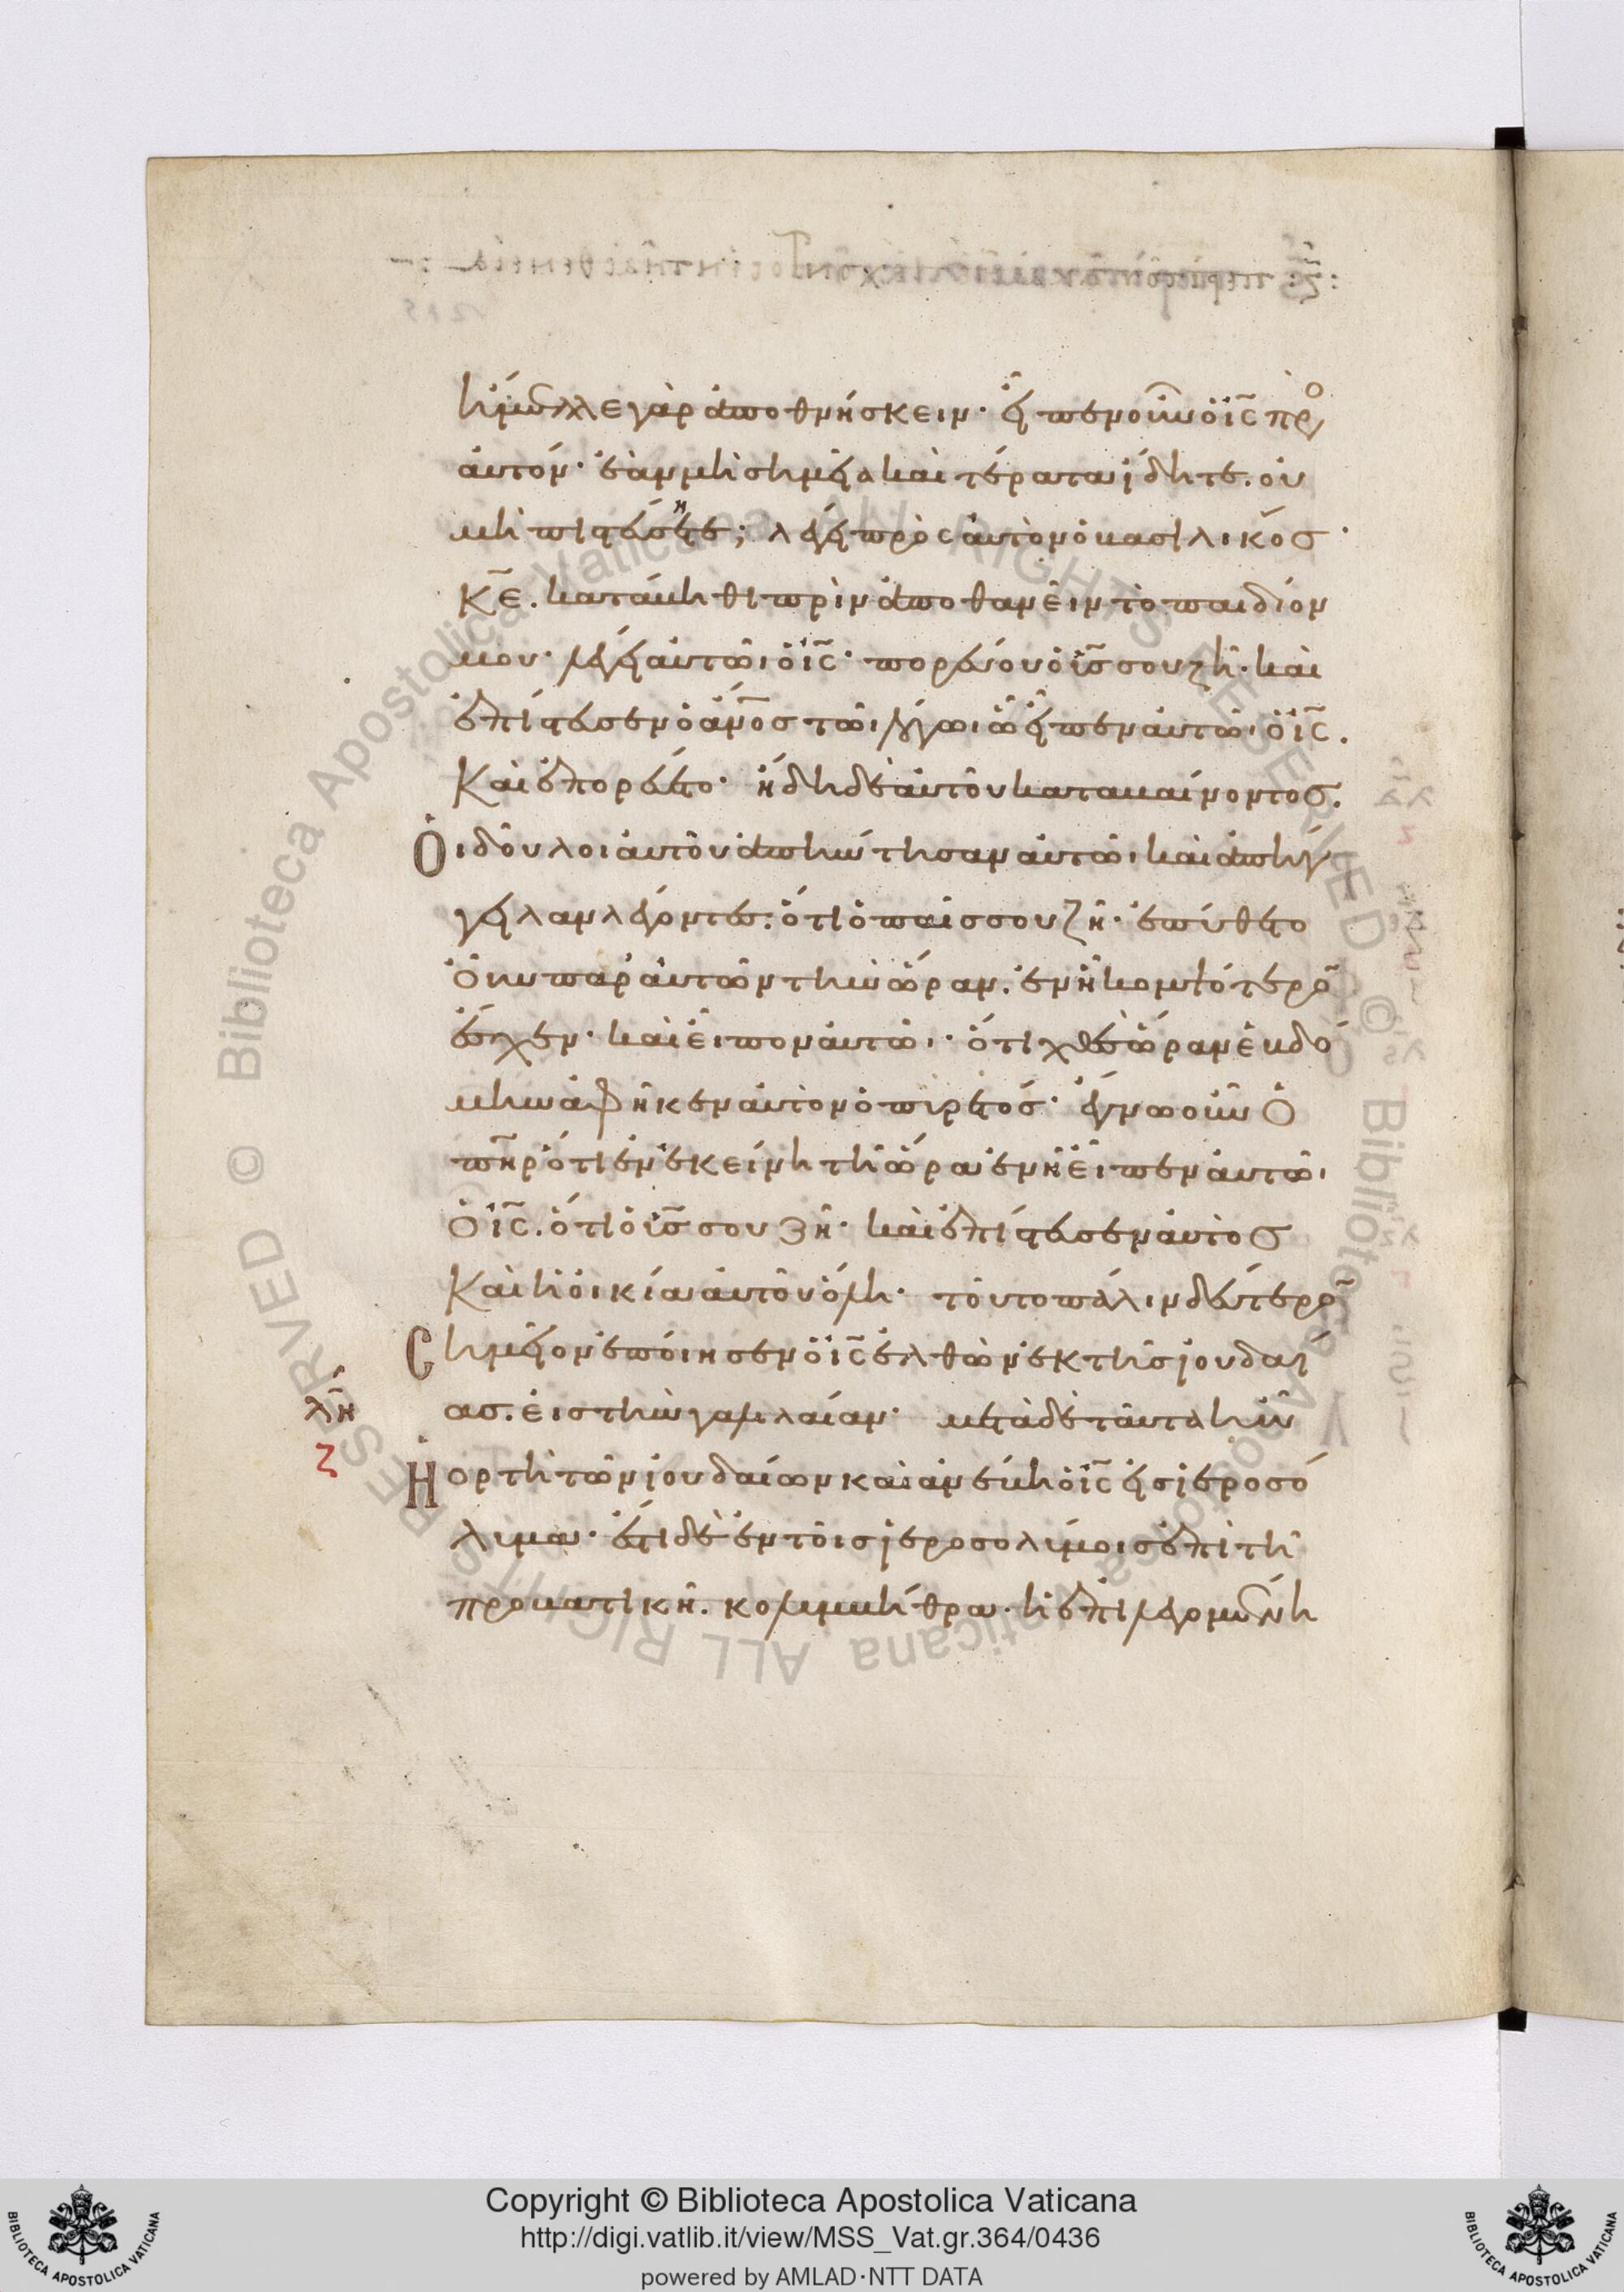 ἤμελλε γὰρ ἀποθνήσκειν· εἶπεν οὖν ὁ ις πρὸ
αὐτόν· ἐὰν μὴ σημεῖα καὶ τέρατα ἴδητε. οὐ
μὴ πιστεύσητε; λέγει πρὸς αὐτὸν ὁ βασιλικός·
κε. κατάβηθι πρὶν ἀποθανεῖν τὸ παιδίον
μου· λέγει αὐτῶι ὁ ις· πορεύου ὁ υς σου ζῆ· καὶ
ἐπίστευσεν ὁ ανος τῶι λόγωι ὧ εἶπεν αὐτῶι ὁ ις.
Καὶ ἐπορεύετο· ἤδη δὲ αὐτοῦ καταβαίνοντος.
Οἱ δοῦλοι αὐτοῦ ἀπήντησαν αὐτῶι καὶ ἀπήγ
γειλαν λέγοντες: ὅτι ὁ παῖς σου ζῆ· ἐπύθετο
οὖν παρ' αὐτῶν τὴν ὥραν. ἐν ἧ κομψότερο
ἔσχεν· καὶ εἶπον αὐτῶι· ὅτι χθὲς ὥραν ἑβδό
μην ἀφῆκεν αὐτὸν ὁ πυρετός· ἔγνω οὖν ὁ
πηρ ὅτι ἐν ἐκείνη τῆ ὥρα ἐν ἧ εἶπεν αὐτῶι
ὁ ις. ὅτι ὁ υς σου ζῆ· καὶ ἐπίστευσεν αὐτὸς
Καὶ ἡ οἰκία αὐτοῦ ὅλη· τοῦτο πάλιν δεύτερο
Σημεῖον ἐποίησεν ὁ ις ἐλθὼν ἐκ τῆς ἰουδαί
ας. εἰς τὴν γαλιλαίαν· μετὰ δὲ ταῦτα ἦν
λη
ζ
Ἡ ορτὴ τῶν ἰουδαίων καὶ ἀνέβη ὁ ις εἰς ἱεροσό
λυμα· ἔστι δὲ ἐν τοῖς ἱεροσολύμοις ἐπὶ τῆ
προβατικῆ. κολυμβήθρα· ἡ ἐπιλεγομένη
Copyright © Biblioteca Apostolica Vaticana
http://digi.vatlib.it/view/MSS_Vat.gr.364/0436
powered by AMLAD·NTT DATA